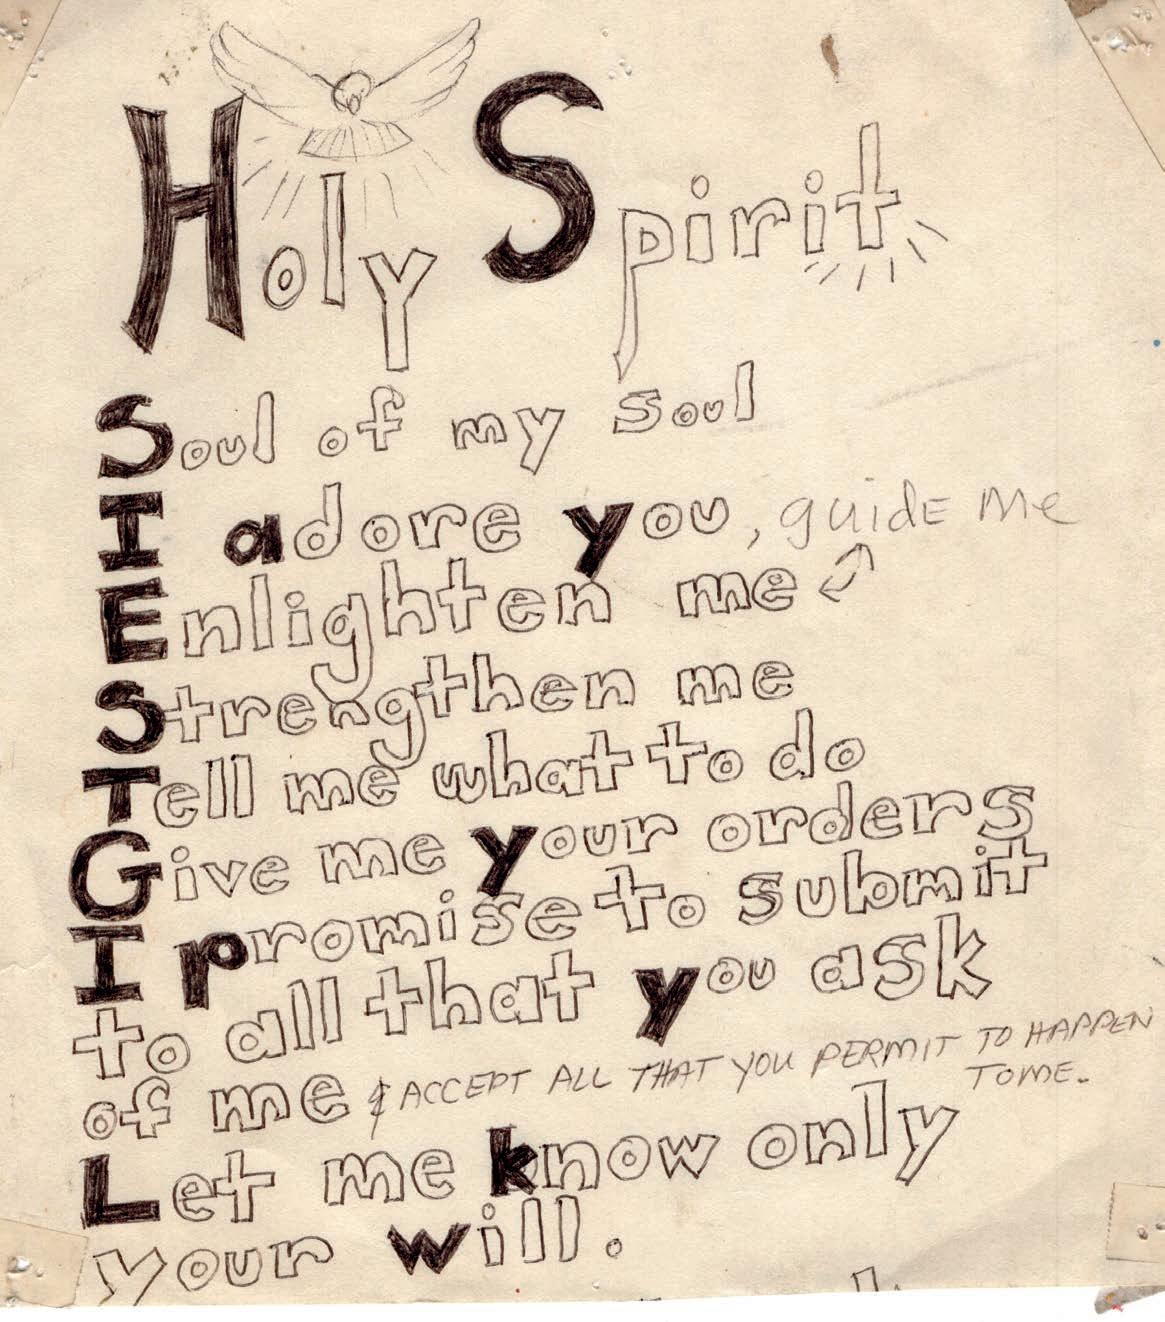 Holy Spirit
Soul of my soul
I adore you, guide me
Enlighten me
Strengthen me
Tell me what to do
Give me your orders
I promise to submit
to all that you ask
of me & ACCEPT ALL THAT YOU PERMIT TO HAPPEN
TO ME.
Let me know only
your will.